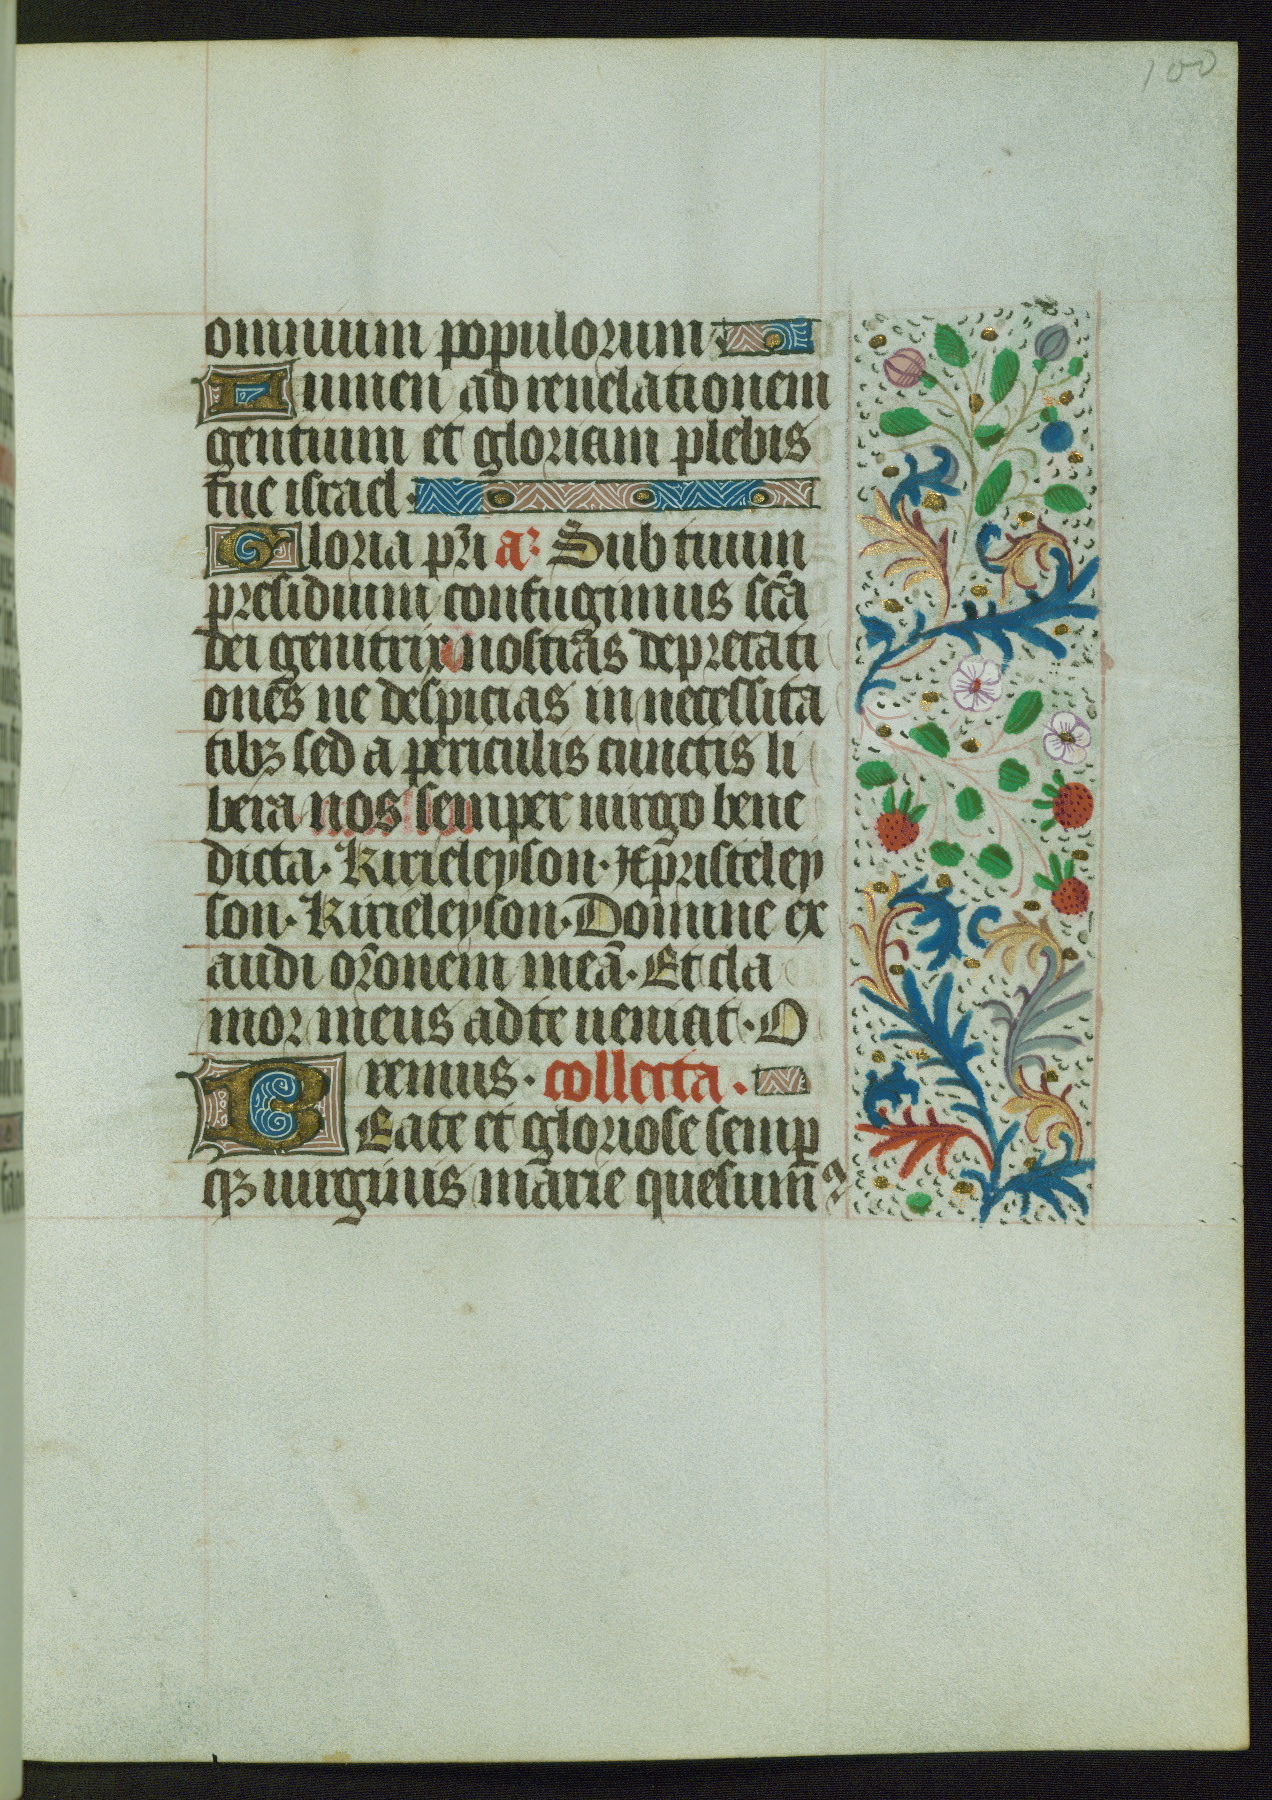 100
omnium populorum
Lumen ad reuelationem
gentium et gloriam plebis
tue israel·
Gloria pr̃i a: Sub tuum
presidium confugimus scã
dei genitrix nostrãs deprecati
onẽs ne despicias in necessita
tibꝫ sed a periculis cunctis li
bera nos semper uirgo bene
dicta· Kirieleyson· Xp̃risteley
son· Kirieleyson· Domine ex
audi or̃onem meã· Et cla
mor meus ad te ueniat· O
remus· collecta·
BEate et gloriose semꝑ
qꝫ uirginis mãrie quesum̃